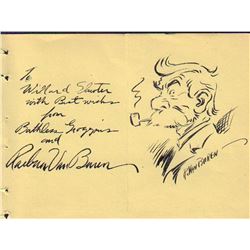 To
Willard
with Best wishes
from
Bathless Groggins
and
Raeburn Van Buren
VAN BUREN